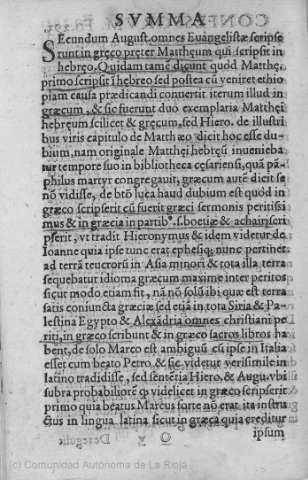 SVMMA
SEcundum August. omnes Euāgelistæ scripse
runt in greco preter Mattheum qui scripsit in
hebreo. Quidam tamē dicunt quod Matthę.
primo scripsit ī hebreo sed postea cū veniret ethio
piam causa prædicandi conuertit iterum illud in
græcum, & sic fuerunt duo exemplaria Matthęi
hebręum scilicet & gręcum, sed Hiero. de illustri
bus viris capitulo de Matthæo dicit hoc esse du
bium, nam originale Matthęi hebręū inuenieba
tur tempore suo in bibliotheca cęsariensi, quā pā
philus martyr congregauit, græcum autē dicit se
nō vidisse, de btō luca haud dubium est quòd in
græco scripserit cū fuerit gręci sermonis peritissi
mus & in græcia in partib⁹ .s. boetiæ & achaiæ scri
pserit, vt tradit Hieronymus & idem videtur de
Ioanne quia ipse tunc erat ephesiq; nunc pertinet
ad terrā teucrorū in Asia minori & tota illa terra
sequebatur idioma græcum maxime inter peritos
sicut modo etiam fit, nā nō solū ibi que est terra
satis coniuncta græciæ sed etiā in tota Siria & Pa
lestina Egypto & Alexādria omnes christiani pe
riti, in græco scribunt & in græco sacros libros ha
bent, de solo Marco est ambiguū cū ipse in Italia
esset cum beato Petro, & sic videtur verisimile in
latino tradidisse, sed sentētia Hiero. & Augu. vbi
supra probabiliorē ꝙ videlicet in græco scripserit
primo quia beatus Marcus forte nō erat ita instru
ctus in lingua latina sicut in græca quia creditur
O 3
ipsum
(c) Comunidad Autónoma de La Rioja